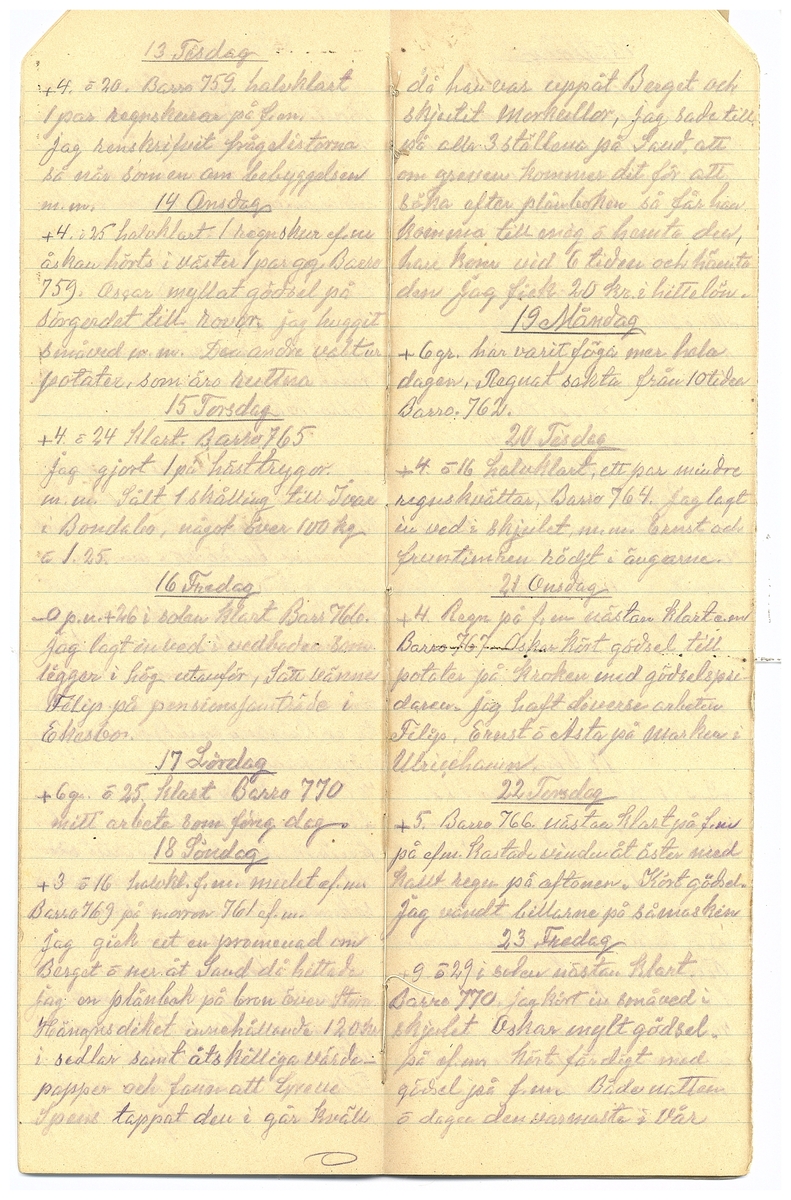 13 Tisdag
+4. o 20. Barro 759. halvklart
1 par regnskurar på f.m.
Jag renskrifvit frågelistorna
så när som en om bebyggelsen
m.m.
14 Onsdag
+4. o 25 halvklart 1 regnskur ef.m
åskan hörts i väster 1 par gg. Barro
759. Oscar myllat gödsel på
till rovor, jag huggit
småved m.m. Den andre
potater, som äro ruttna
15 Torsdag
+4 o 24 klart. Barro 765
jag gjort 1 på
m.m. Sålt 1 skålling till Ivar
i Bondabo, något över 100 kg
o 1.25.
16 Fredag
-0 p.n. +26 i solen klart Barr 766.
Jag lagt in ved i vedboden som
legger i hög utanför,
Filip på pensionsjomträde i
Ekesbo.
17 Lördag
+6 gr. o 25. klart Barro 770
mitt arbete som förig. dag.
18 Söndag
+3 o 16 halvkl. f.m. mulet ef.m.
Barro 769 på morron 761 ef.m.
Jag gick ut en promenad om
Berget o ner åt Sand då hittade
jag en plånbok på bron över
Hängnsdiket innehållande 120 kr
i sedlar samt åtskilliga värde-
papper och fann att Greve
Spens tappat den i går kväll
då han var uppåt Berget och
skjutit Morkullor, jag sade till
på alla 3 ställena på Sand, att
om greven kommer dit för att
söka efter plånboken så får han
komma till mig o hemta den,
han kom vid 6 tiden och hämta
den Jag fick 20 kr. i hittelön.
19 Måndag
+6 gr. har varit föga mer hela
dagen, Regnat sakta från 10 tiden
Barro. 762.
20 Tisdag
+4. o 16 halvklart, ett par mindre
regnskvättar, Barro 764. Jag lagt
in ved i skjulet, m.m. Ernst och
fruntimren rödjt i ängarne.
21 Onsdag
+4. Regn på f.m nästan klart e.m
Barro 767 Oskar kört gödsel till
potater på kroken med gödselspri-
daren. jag haft diverse arbeten
Filip, Ernst o Asta på marken i
Ulricehamn.
22 Torsdag
+5. Barro 766. nästan klart på f.m
på ef.m. kastade vinden åt öster med
kallt regn på aftonen. Kört gödsel.
Jag vändt billarne på såmaskin
23 Fredag
+9 o 29 i solen nästan klart.
Barro 770. jag kört in småved i
skjulet Oskar mylt gödsel.
på ef.m. kört färdigt med
gödsel på f.m. Både natten
o dagen den varmaste i vår